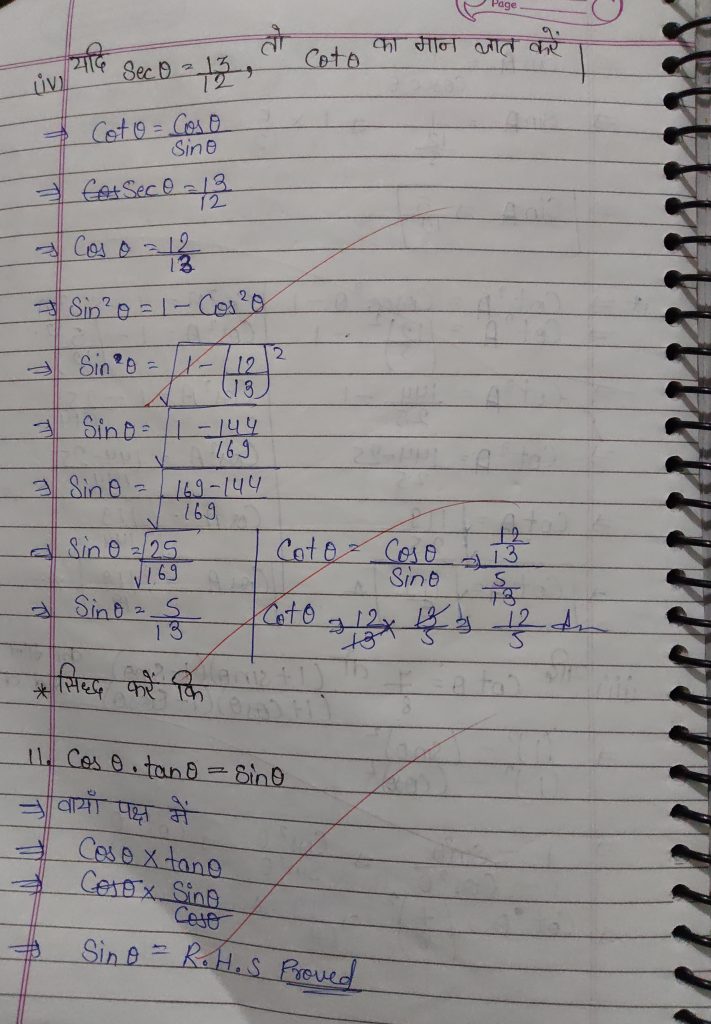 Page
(iv) यदि Secθ = 13/12, तो Cotθ का मान ज्ञात करें |
⇒ Cotθ = Cosθ/Sinθ
⇒ Secθ = 13/12
⇒ Cosθ = 12/13
⇒ Sin²θ = 1 - Cos²θ
⇒ Sin²θ = √1 - (12/13)²
⇒ Sinθ = √1 - 144/169
⇒ Sinθ = √169-144/169
⇒ Sinθ = √25/√169
⇒ Sinθ = 5/13
Cotθ = Cosθ/Sinθ ⇒ 12/13/5/13
Cotθ ⇒ 12/13 × 13/5 ⇒ 12/5 Ans
* सिद्ध करें कि
11. Cosθ . tanθ = Sinθ
⇒ वायाँ पक्ष में
⇒ Cosθ × tanθ
⇒ Cosθ × Sinθ/Cosθ
⇒ Sinθ = R.H.S Proved